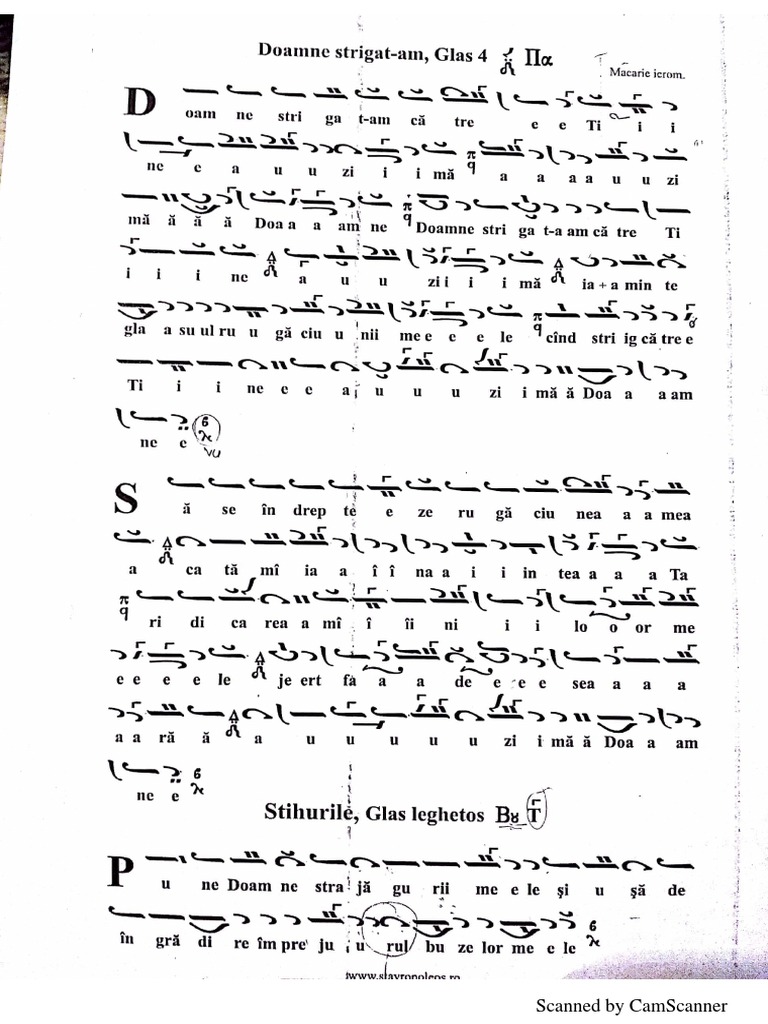 Doamne strigat-am, Glas 4 Πα
Macarie ierom.
D oam ne stri ga t-am că tre e e Ti i i
ne e a u u zi i i mă a a a a u u zi
mă ă ă ă Doa a a am ne Doamne stri ga t-a am că tre Ti
i i i ne a u u zi i i i i mă ia + a min te
gla a su ul ru u gă ciu u nii me e e e le cînd stri ig că tre e
Ti i i ne e e a u u u zi i mă ă Doa a a am
ne e
S ă se în drep te e ze ru gă ciu nea a a mea
a ca tă mî ia a î î na a i i in tea a a a Ta
ri di ca rea a mî î îi ni i i lo o or me
e e e e le je ert fă a a de e e e sea a a a
a a ră ă a u u u u u zi i mă ă Doa a am
ne e
Stihurile, Glas leghetos Βȣ
P u ne Doam ne stra jă gu rii me e le şi u şă de
în gră di re îm pre ju u rul bu ze lor me e le
www.stavropoleos.ro
Scanned by CamScanner